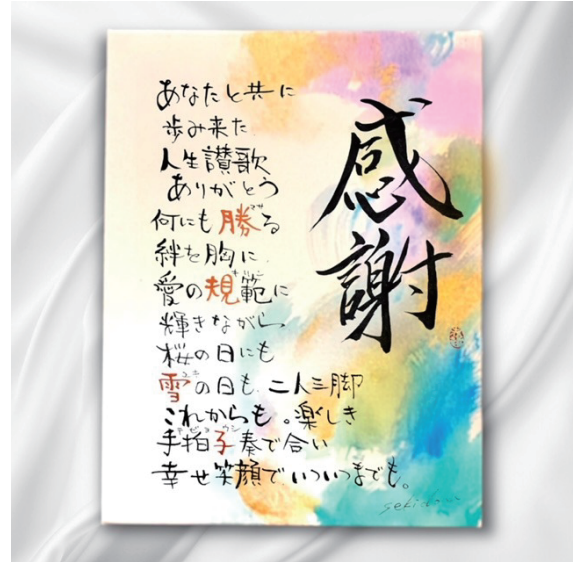 感謝
あなたと共に
歩み来た
人生讃歌
ありがとう
何にも勝る
絆を胸に
愛の規範に
輝きながら
桜の日にも
雪の日も 二人三脚
これからも。楽しき
手拍子奏で合い
幸せ笑顔でいついつまでも。